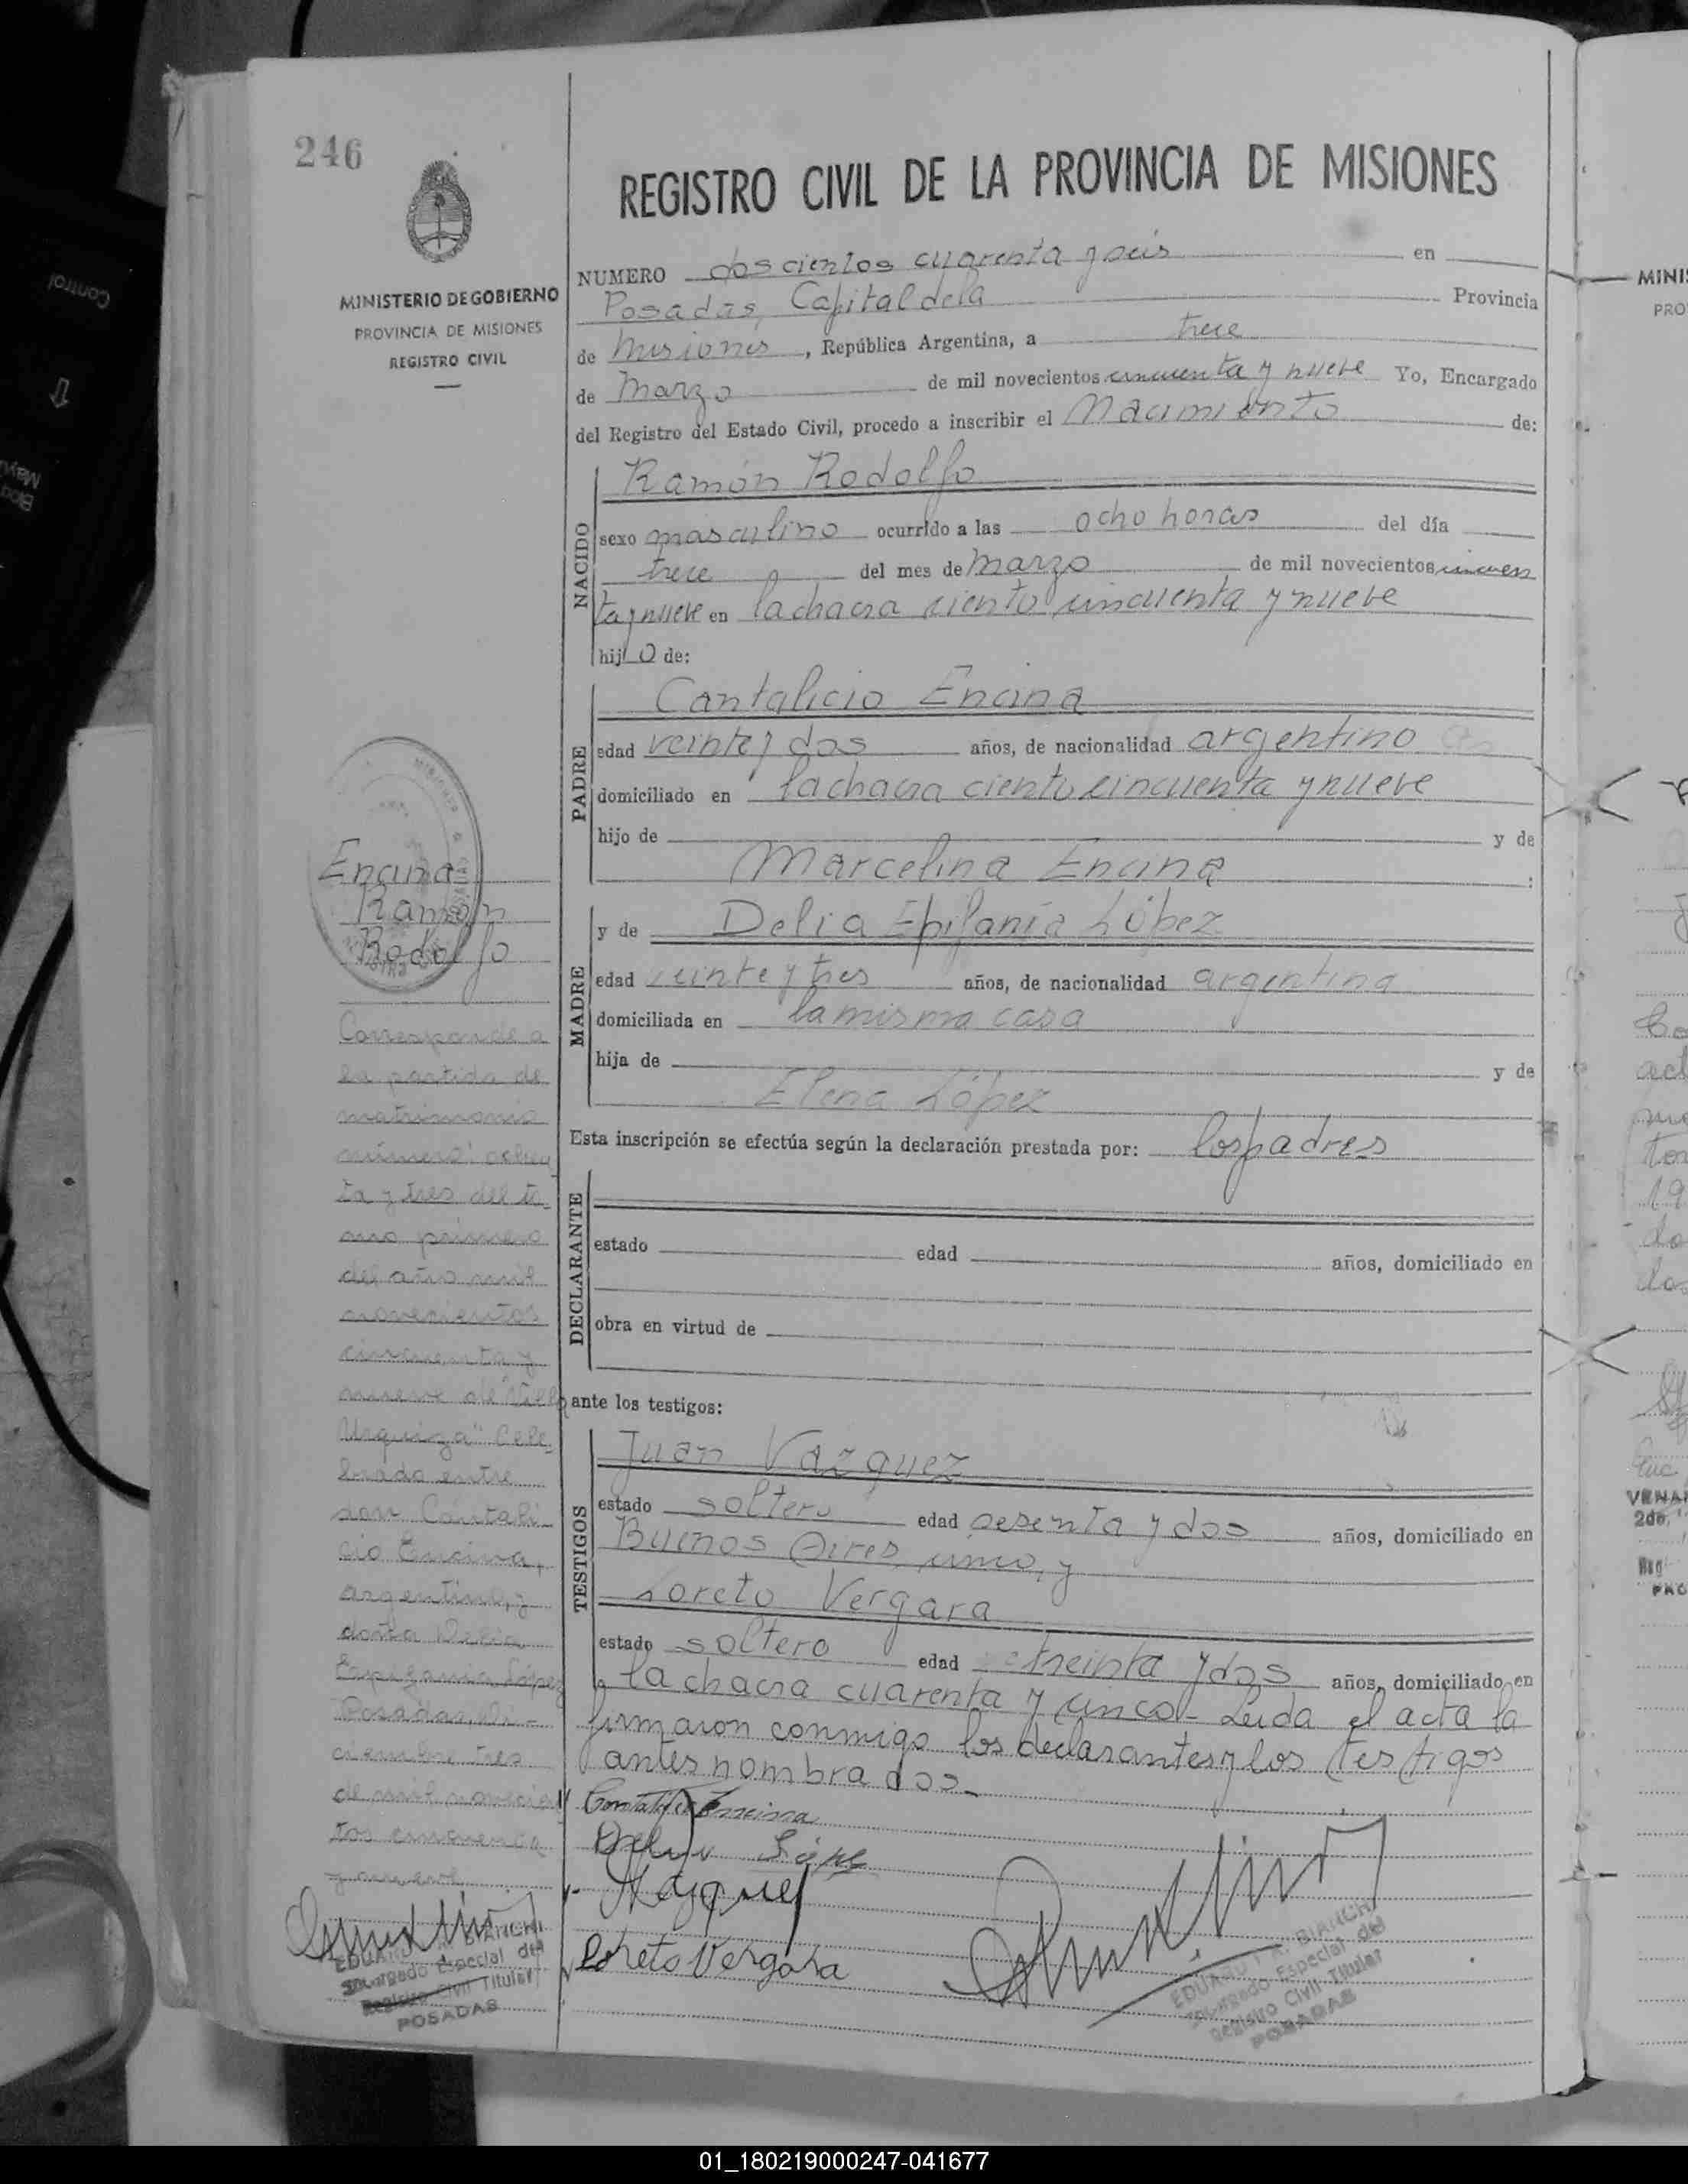 246
REGISTRO CIVIL DE LA PROVINCIA DE MISIONES
MINISTERIO DE GOBIERNO
PROVINCIA DE MISIONES
REGISTRO CIVIL
NUMERO doscientos cuarenta y seis en
Posadas, Capital de la Provincia
de Misiones, República Argentina, a trece
de Marzo de mil novecientos cincuenta y nueve Yo, Encargado
del Registro del Estado Civil, procedo a inscribir el Nacimiento de:
NACIDO
Ramón Rodolfo
sexo masculino ocurrido a las ocho horas del día
trece del mes de Marzo de mil novecientos cincuen
ta y nueve en la chacra ciento cincuenta y nueve
hijo de:
PADRE
Cantalicio Encina
edad veinte y dos años, de nacionalidad argentino
domiciliado en la chacra ciento cincuenta y nueve
hijo de y de
Marcelina Encina
MADRE
y de Delia Epifania López
edad veinte y tres años, de nacionalidad argentina
domiciliada en la misma casa
hija de y de
Elena López
Esta inscripción se efectúa según la declaración prestada por: los padres
DECLARANTE
estado edad años, domiciliado en
obra en virtud de
ante los testigos:
TESTIGOS
Juan Vazquez
estado soltero edad sesenta y dos años, domiciliado en
Buenos Aires cinco, y
Loreto Vergara
estado soltero edad treinta y dos años, domiciliado en
la chacra cuarenta y cinco - Leida el acta la
firmaron conmigo los declarantes y los testigos
antes nombrados.-
Cantalicio Encina
Delia López
Vazquez
Loreto Vergara
EDUARDO A. BIANCHI
Encargado Especial del
Registro Civil Titular
POSADAS
Encina
Ramón
Rodolfo
Corresponde a
la partida de
matrimonio
número: ochen
ta y tres del to
mo primero
del año mil
novecientos
cincuenta y
nueve de "Villa
Urquiza" Cele
brado entre
don Cantali-
cio Encina,
argentino, y
doña Delia
Epifania López
Posadas, di-
ciembre tres
de mil novecien
tos cincuenta
y nueve
EDUARDO A. BIANCHI
Encargado Especial del
Registro Civil Titular
POSADAS
Control
MINIS
PRO
VENAN
2do.
01_180219000247-041677